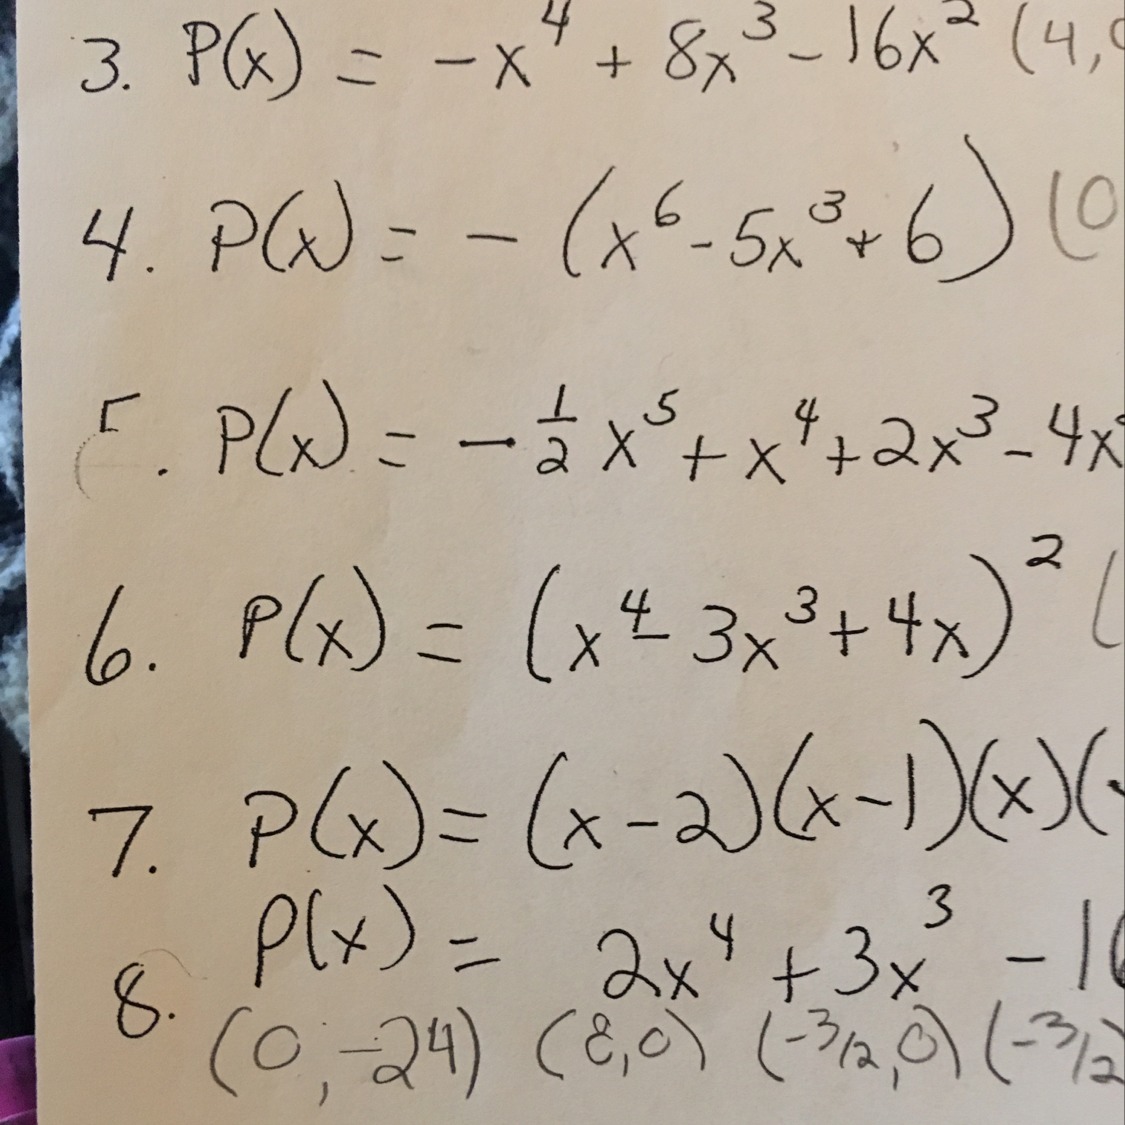 3. P(x) = -x⁴ + 8x³ - 16x² (4,
4. P(x) = - (x⁶ - 5x³ + 6) (0
5. P(x) = - 1/2 x⁵ + x⁴ + 2x³ - 4x
6. P(x) = (x⁴ - 3x³ + 4x)² (
7. P(x) = (x - 2)(x - 1)(x)(
8. P(x) = 2x⁴ + 3x³ - 16
(0, -24) (8,0) (-3/2, 0) (-3/2